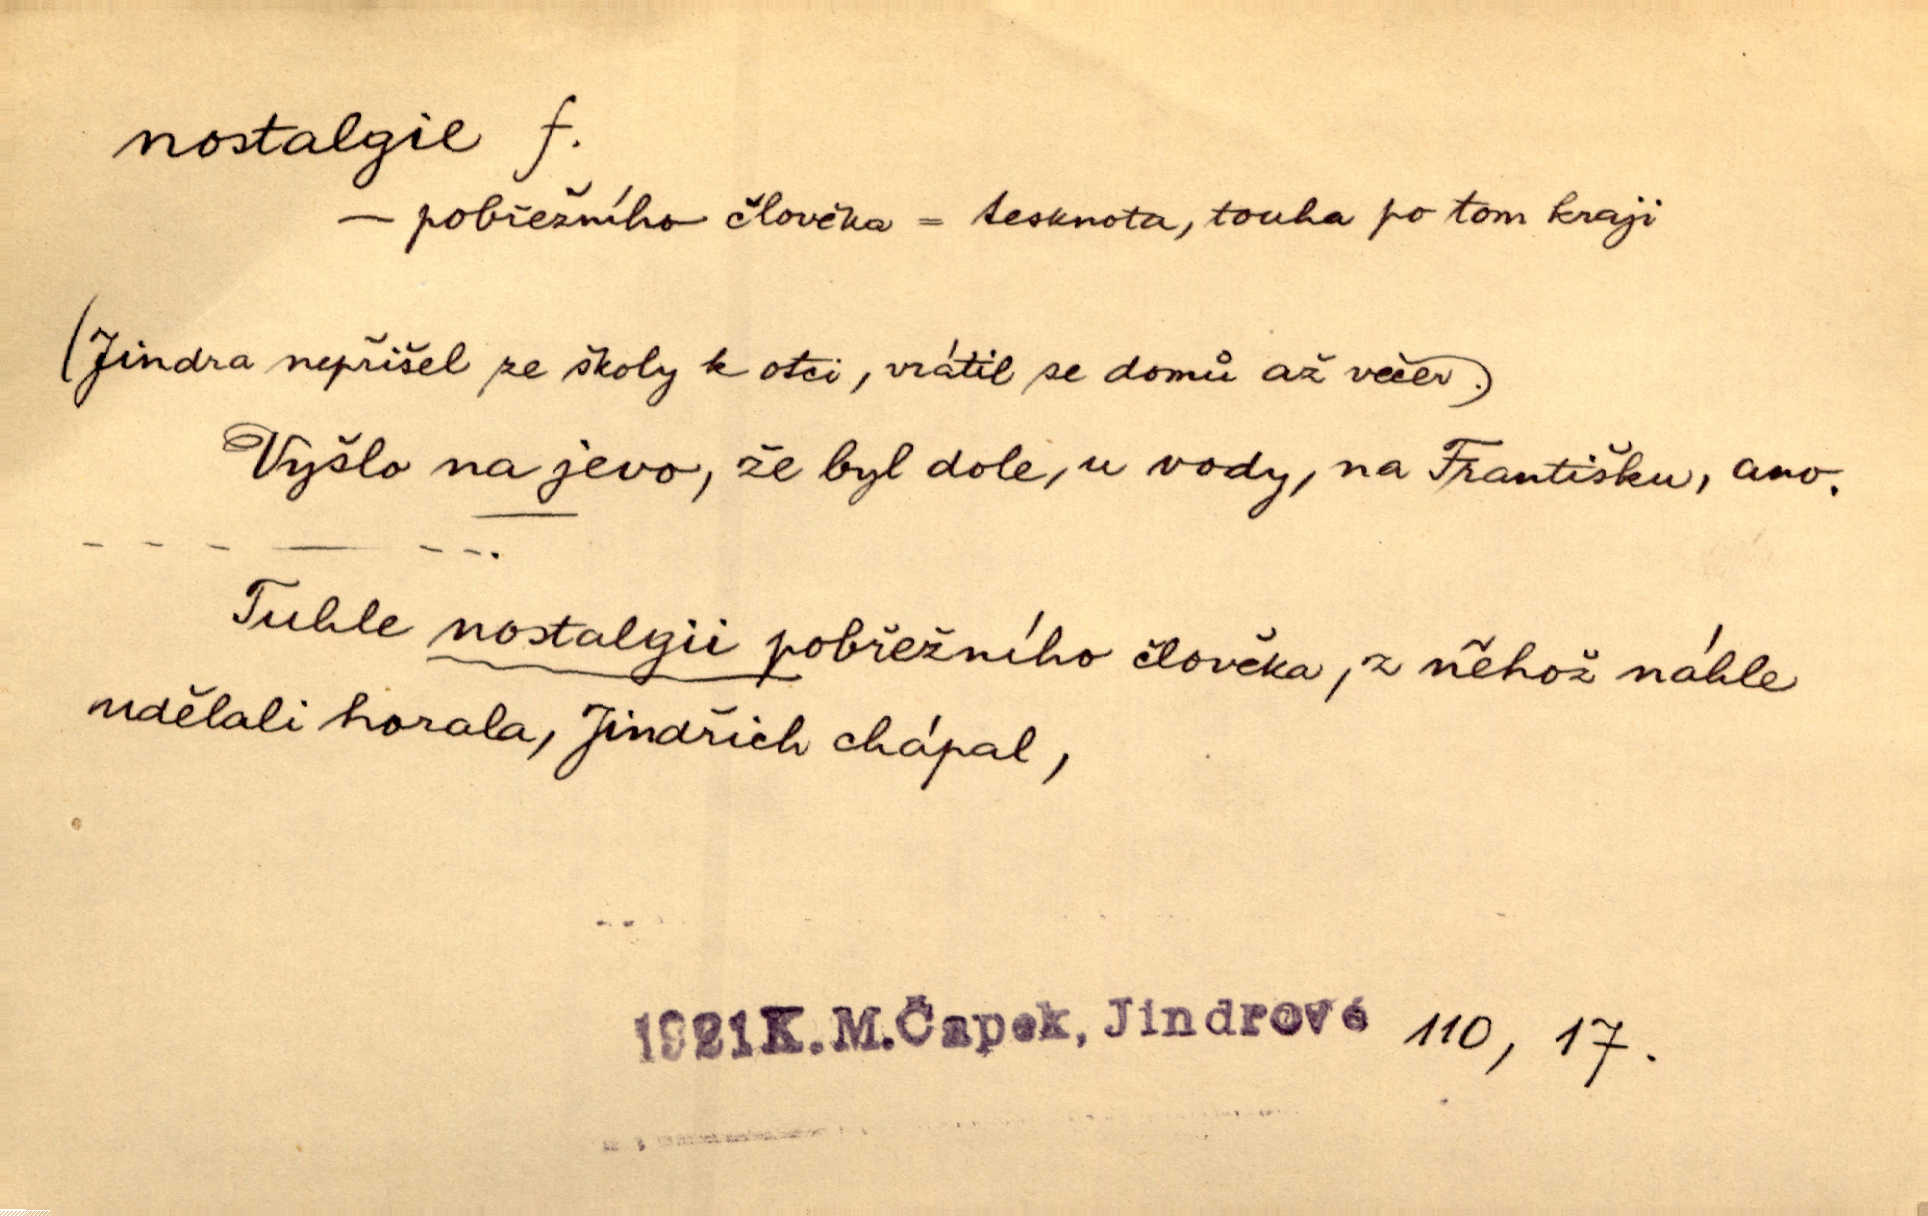 nostalgie f.
— pobřežního člověka = tesknota, touha po tom kraji
(Jindra nepřišel ze školy k otci, vrátil se domů až večer.)
Vyšlo na jevo, že byl dole, u vody, na Františku, ano.
- - - — - - .
Tuhle nostalgii pobřežního člověka, z něhož náhle
udělali horala, Jindřich chápal,
1921 K. M. Čapek, Jindrové 110, 17.